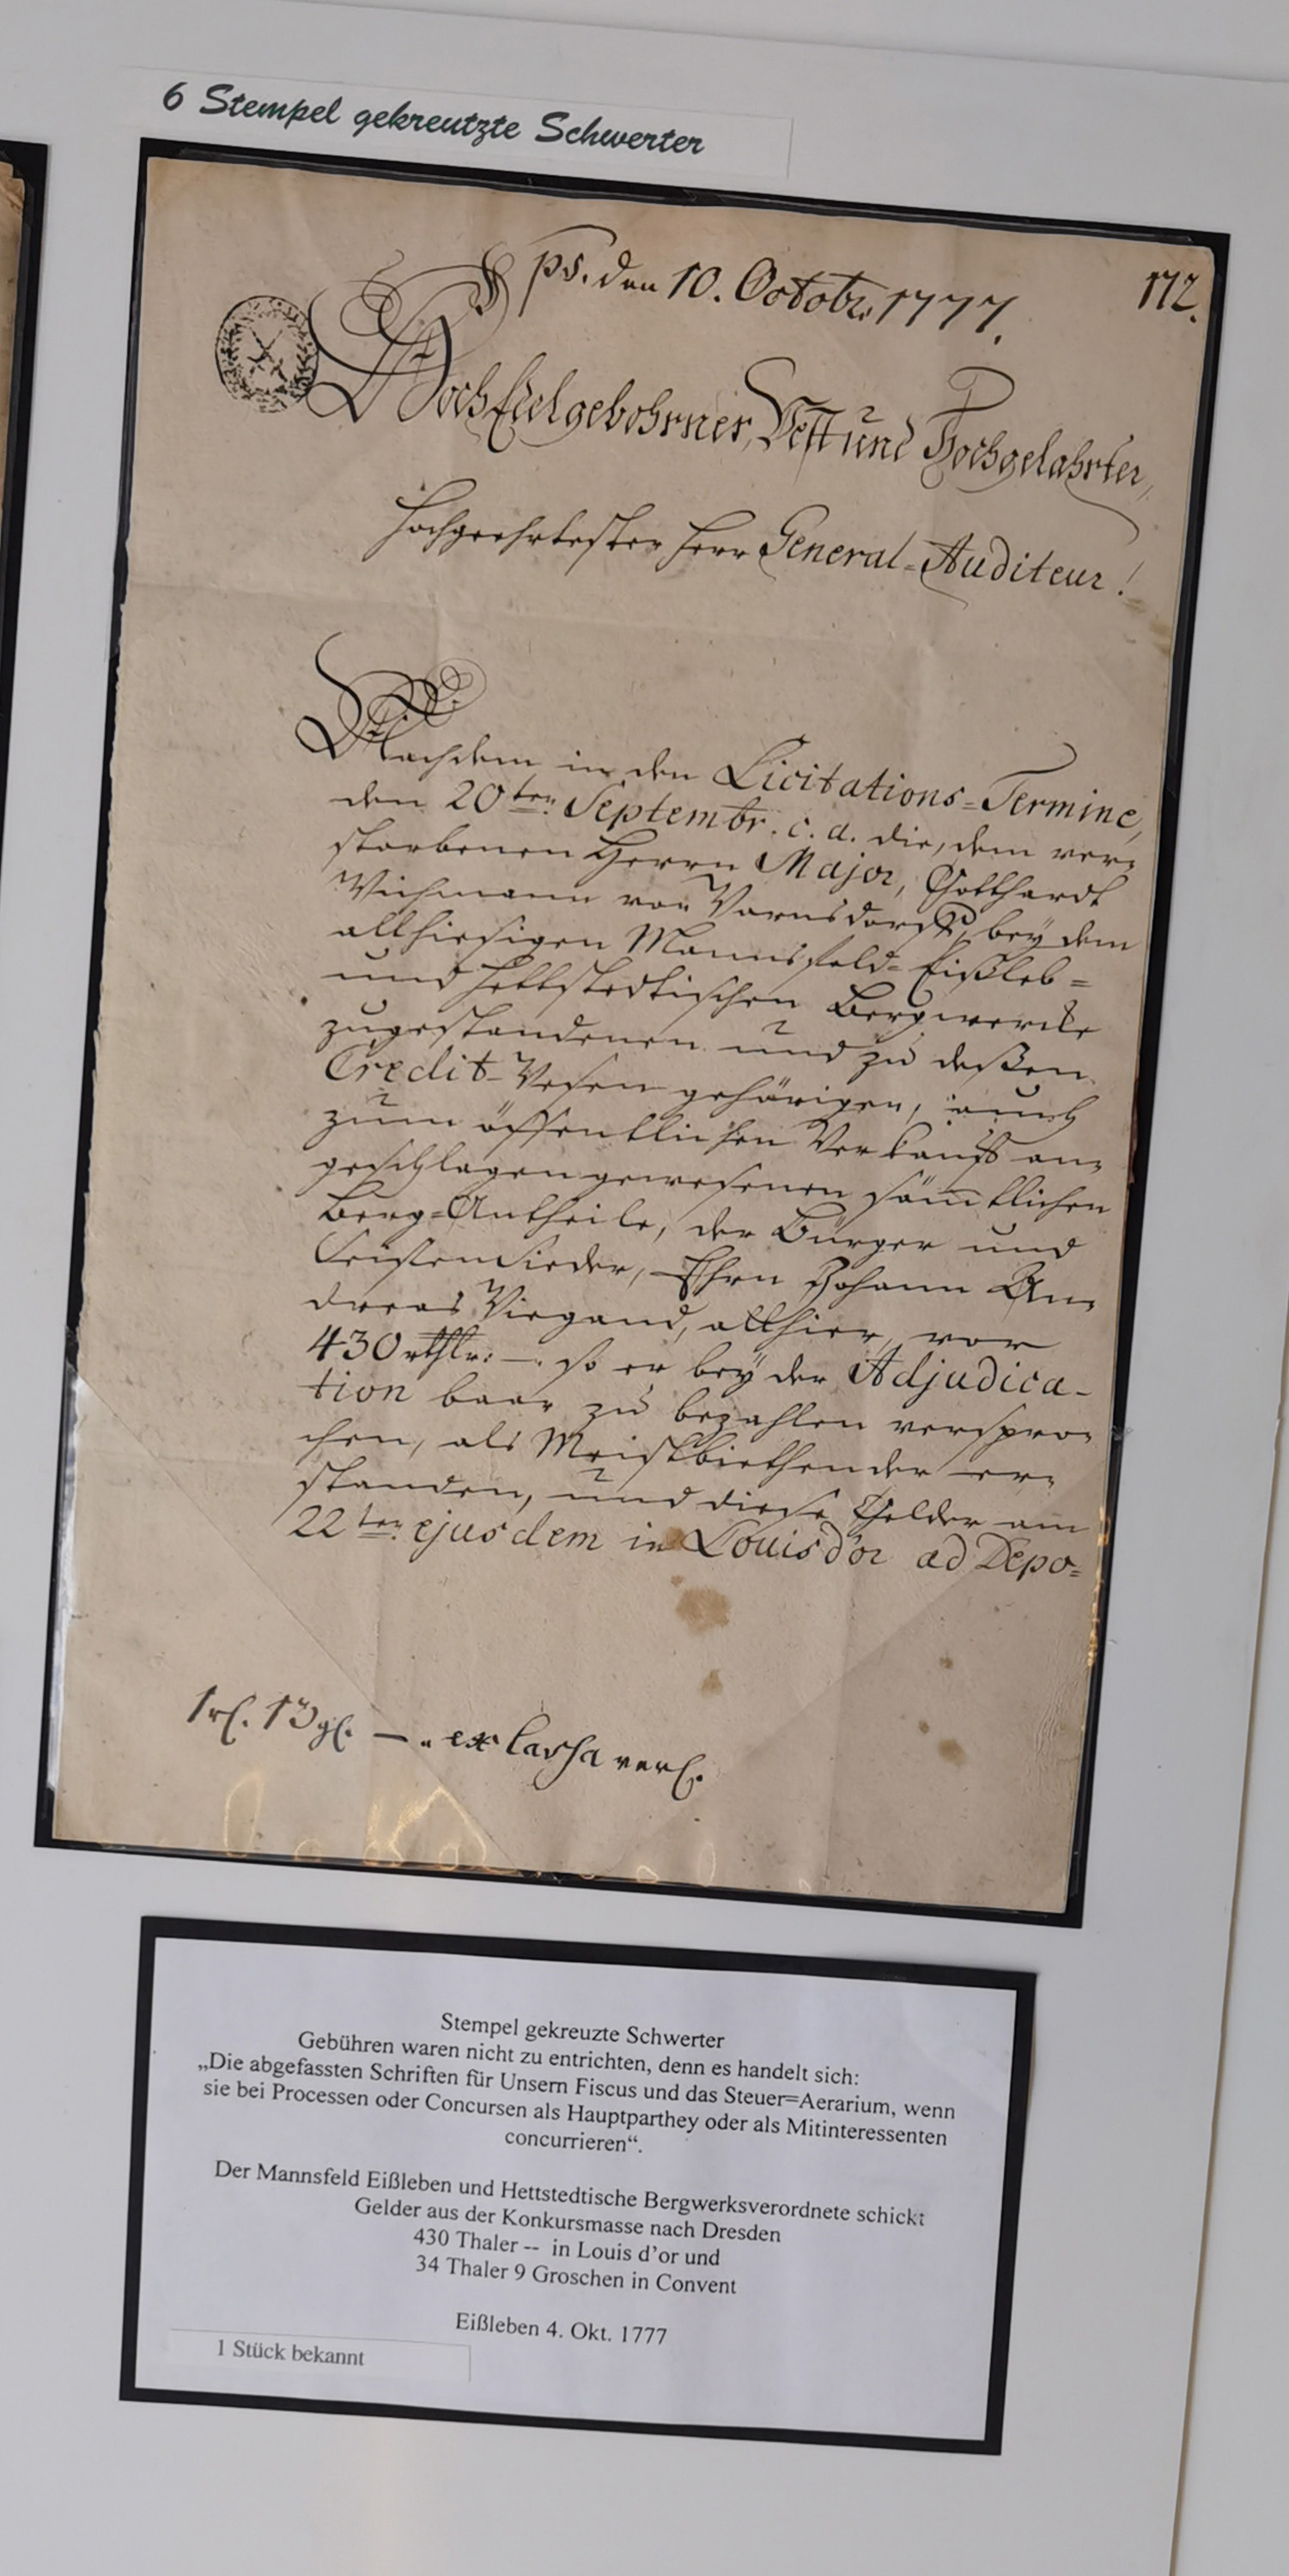 6 Stempel gekreutzte Schwerter
ps. den 10. Octobr. 1777.
172.
HochEdelgebohrner, Vest und Hochgelahrter,
Hochgeehrtester Herr General-Auditeur!
Nachdem in den Licitations-Termine,
den 20ten Septembr. c. a. die, dem ver-
storbenen Herrn Major, Gotthardt
Wichmann von Varnsdorff, bey dem
allhiesigen Mannsfeld-Eißleb-
und Hettstedtischen Bergwercke
zugestandenen und zu deßen
Credit-Wesen gehörigen, auch
zum öffentlichen Verkauff an-
geschlagen gewesenen sämtlichen
Berg-Antheile, der Bürger und
Seifensieder, Ehrn Johann An-
dreas Wiegand, allhier, vor
430 rthlr: —. so er bey der Adjudica-
tion baar zu bezahlen verspro-
chen, als Meistbiethender er-
standen, und diese Gelder am
22ten ejusdem in Louisd'or ad Depo-
1 rl. 13 gl. — . ex Cassa verl.
Stempel gekreuzte Schwerter
Gebühren waren nicht zu entrichten, denn es handelt sich:
„Die abgefassten Schriften für Unsern Fiscus und das Steuer=Aerarium, wenn
sie bei Processen oder Concursen als Hauptparthey oder als Mitinteressenten
concurrieren“.
Der Mannsfeld Eißleben und Hettstedtische Bergwerksverordnete schickt
Gelder aus der Konkursmasse nach Dresden
430 Thaler -- in Louis d’or und
34 Thaler 9 Groschen in Convent
Eißleben 4. Okt. 1777
1 Stück bekannt